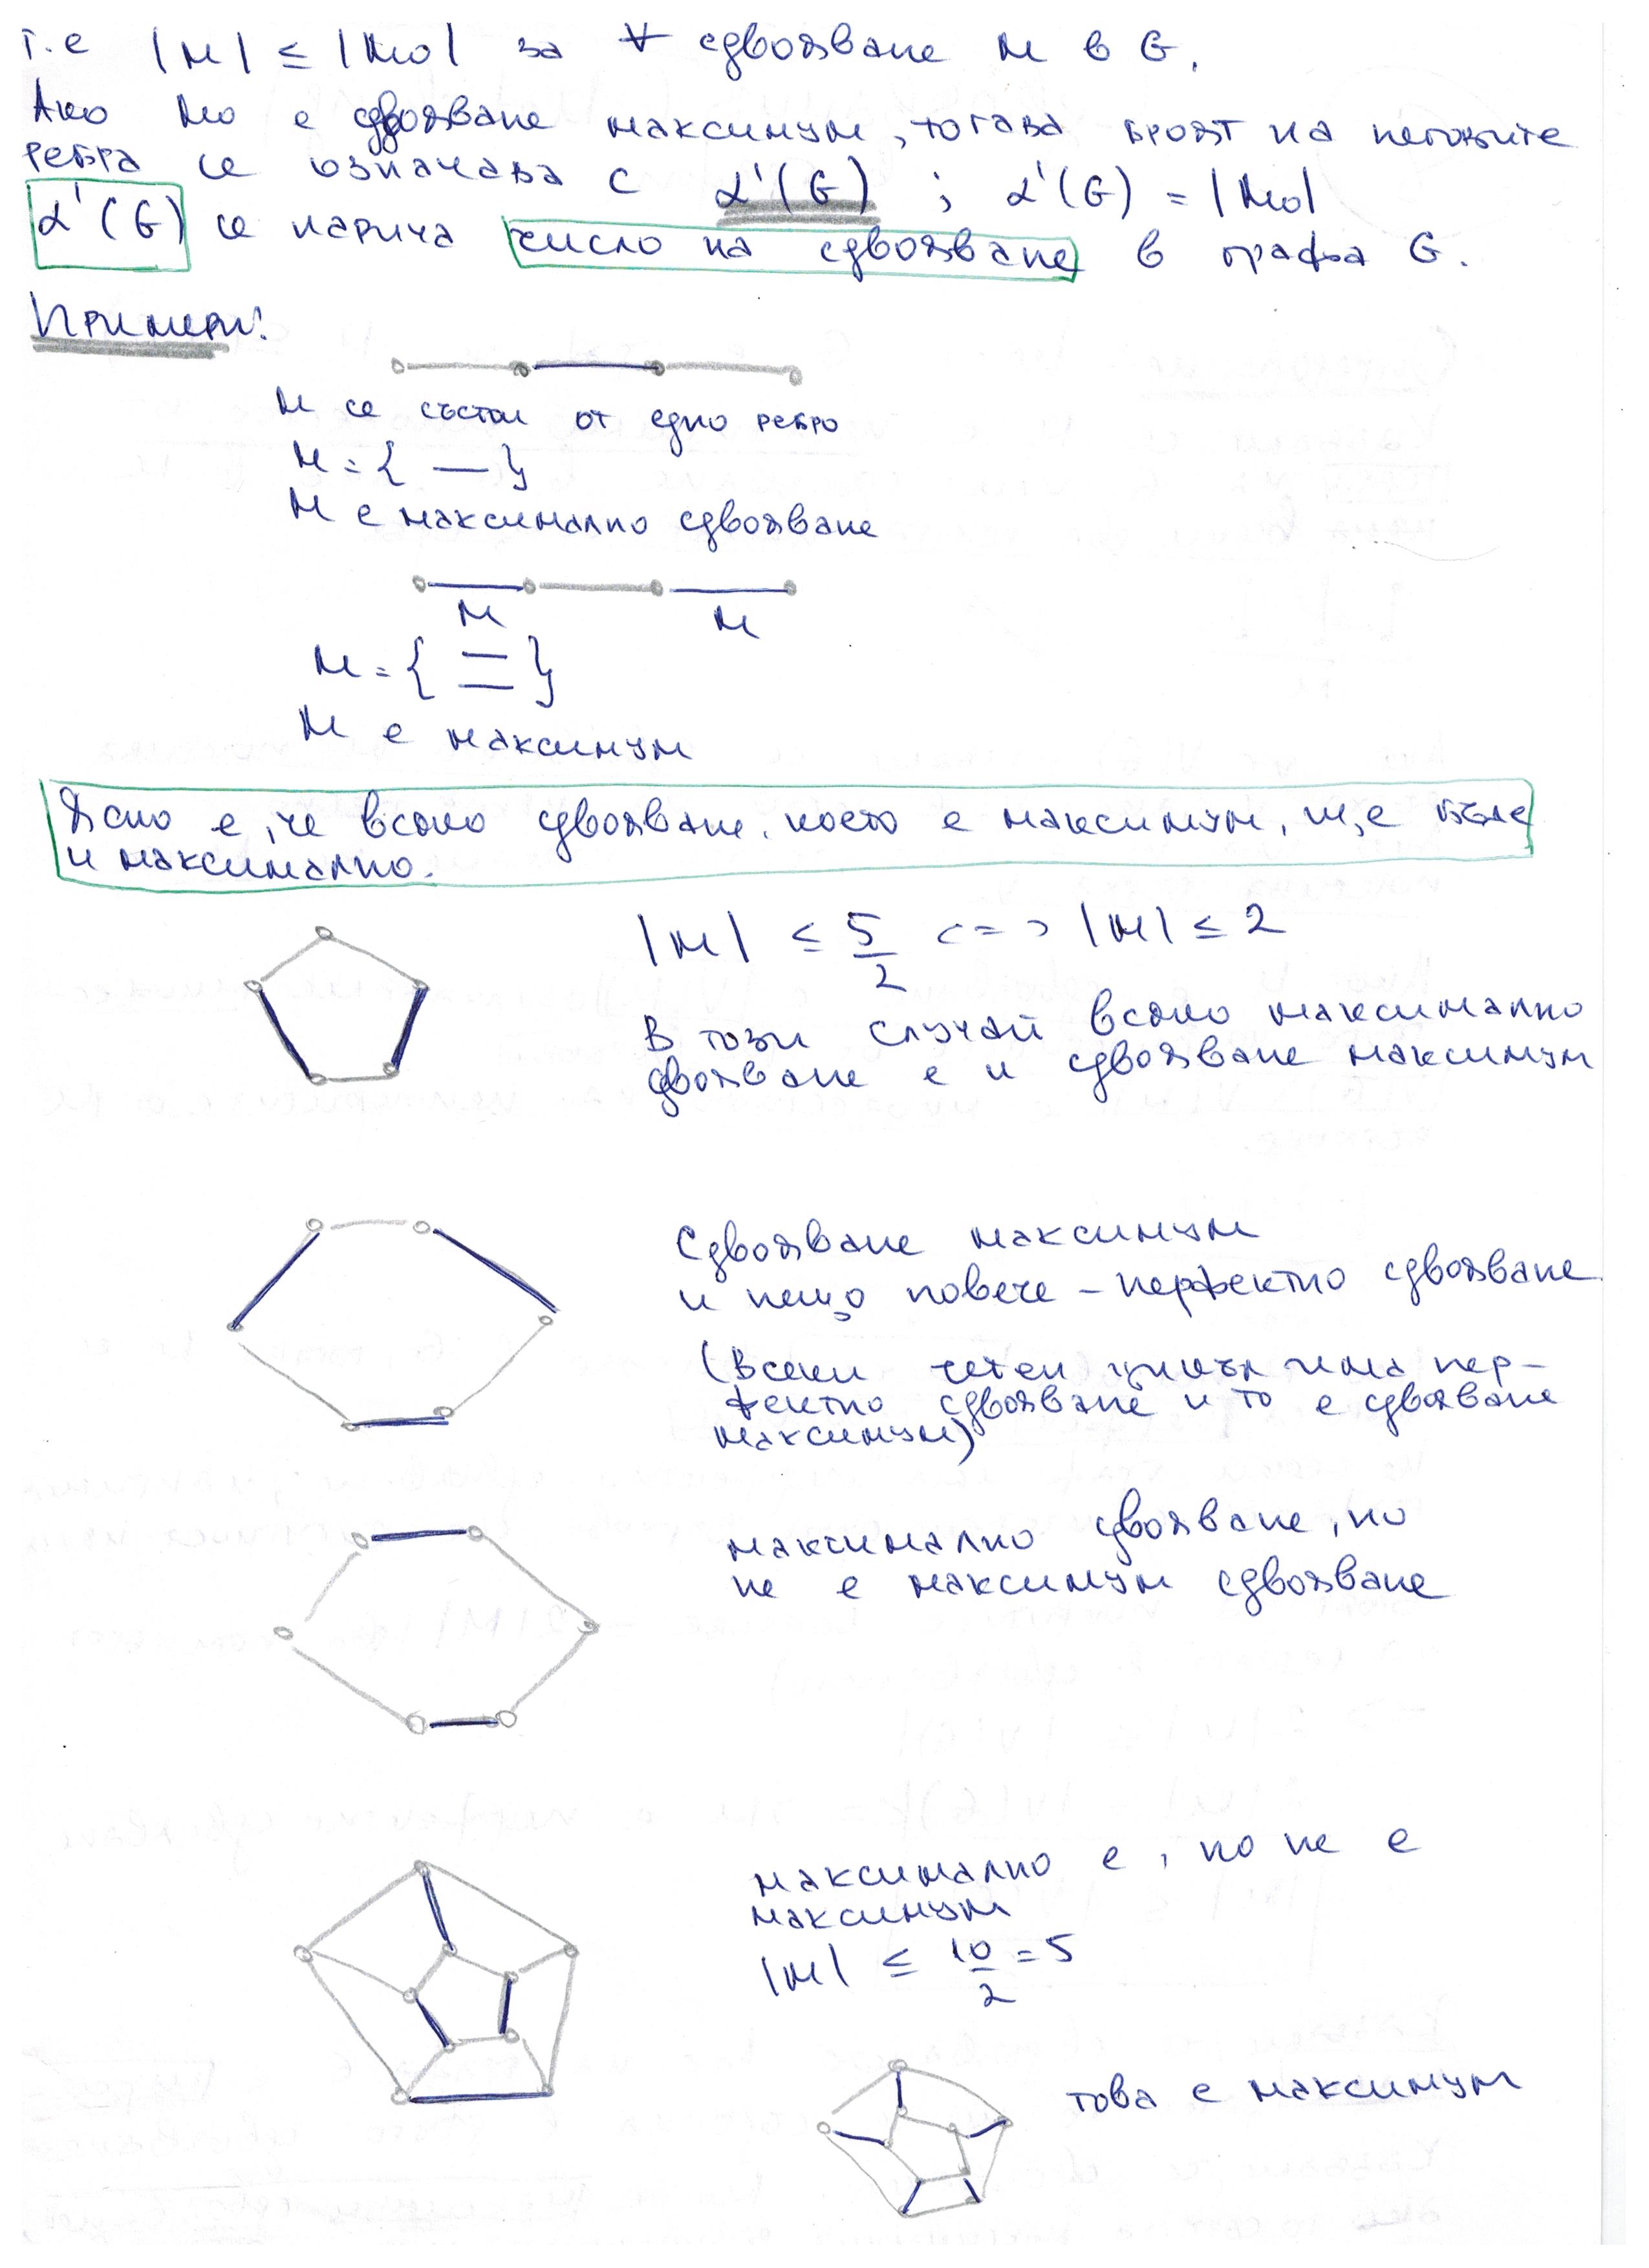 т.е |M| ≤ |Mo| за ∀ сдвояване M в G.
Ако Mo е сдвояване максимум, тогава броят на неговите
ребра се означава с α'(G) ; α'(G) = |Mo|
α'(G) се нарича число на сдвояване в графа G.
Примери:
M се състои от едно ребро
M = { — }
M е максимално сдвояване
M M
M = { = }
M е максимум
Ясно е, че всяко сдвояване, което е максимум, ще бъде
и максимално.
|M| ≤ 5/2 <=> |M| ≤ 2
В този случай всяко максимално
двояване е и сдвояване максимум
Сдвояване максимум
и нещо повече – перфектно сдвояване
(Всеки четен цикъл има пер-
фектно сдвояване и то е сдвояване
максимум)
максимално сдвояване, но
не е максимум сдвояване
максимално е, но не е
максимум
|M| ≤ 10/2 = 5
това е максимум